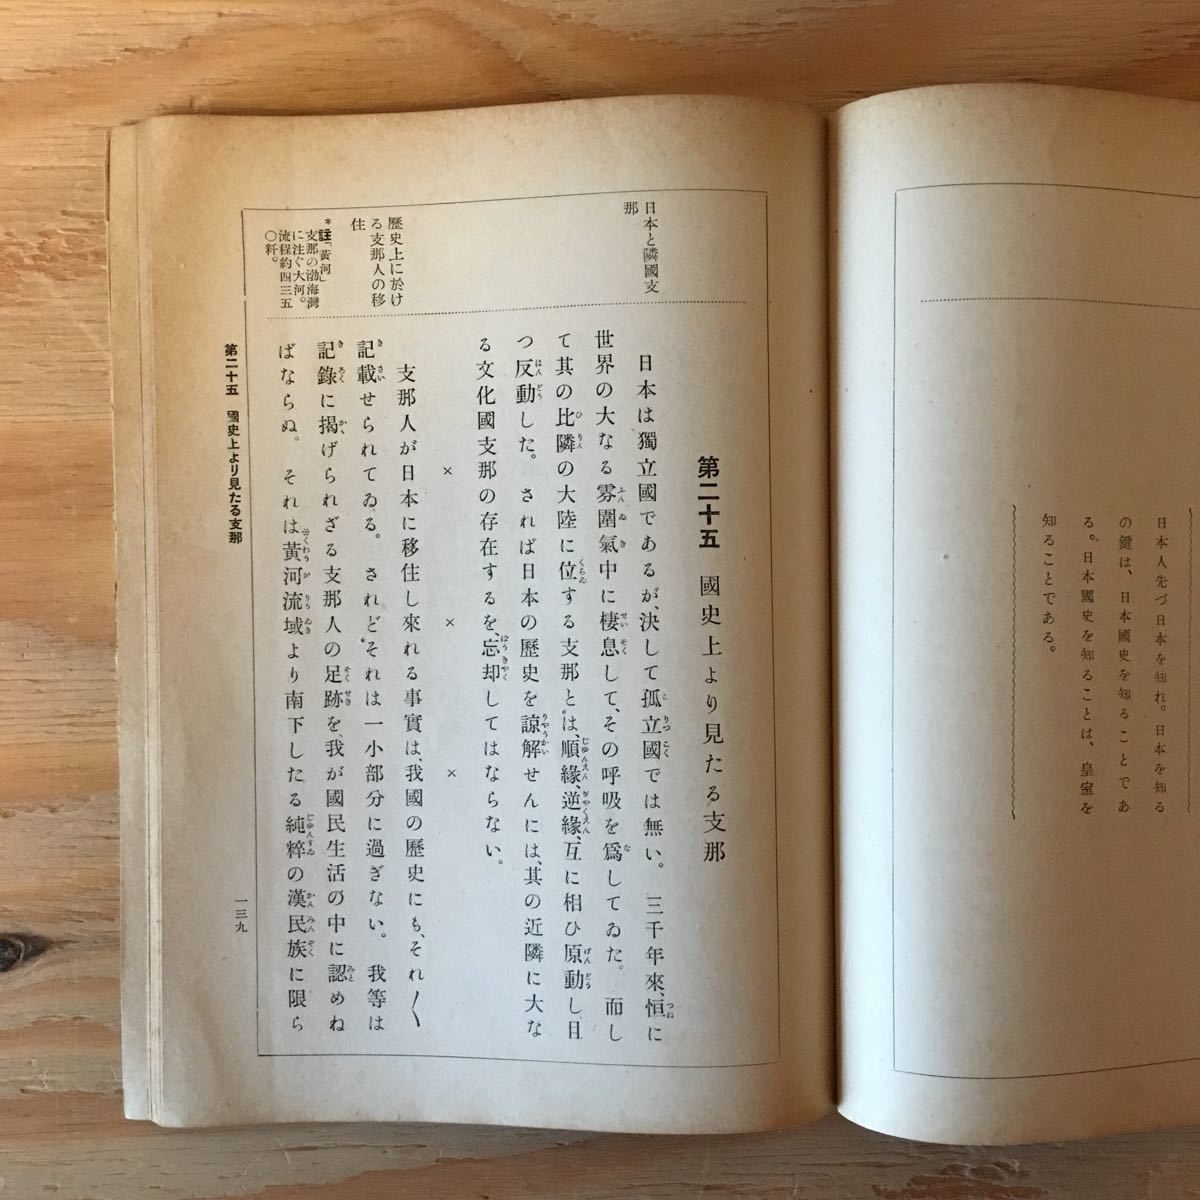 日本人先づ日本を知れ。日本を知る
の鍵は、日本國史を知ることであ
る。日本國史を知ることは、皇室を
知ることである。
日本と隣國支
那
歷史上に於け
る支那人の移
住
＊註「黃河」
支那の渤海灣
に注ぐ大河。
流程約四三五
〇粁。
第二十五　國史上より見たる支那
日本は獨立國であるが、決して孤立國では無い。三千年來、恒に
世界の大なる雰圍氣中に棲息して、その呼吸を爲してゐた。而し
て其の比隣の大陸に位する支那とは、順緣、逆緣、互に相ひ原動し且
つ反動した。されば日本の歷史を諒解せんには、其の近隣に大な
る文化國支那の存在するを、忘却してはならない。
×　×　×
支那人が日本に移住し來れる事實は、我國の歷史にも、それ〱
記載せられてゐる。されどそれは一小部分に過ぎない。我等は
記錄に揭げられざる支那人の足跡を、我が國民生活の中に認めね
ばならぬ。それは黃河流域より南下したる純粹の漢民族に限ら
第二十五　國史上より見たる支那
一三九